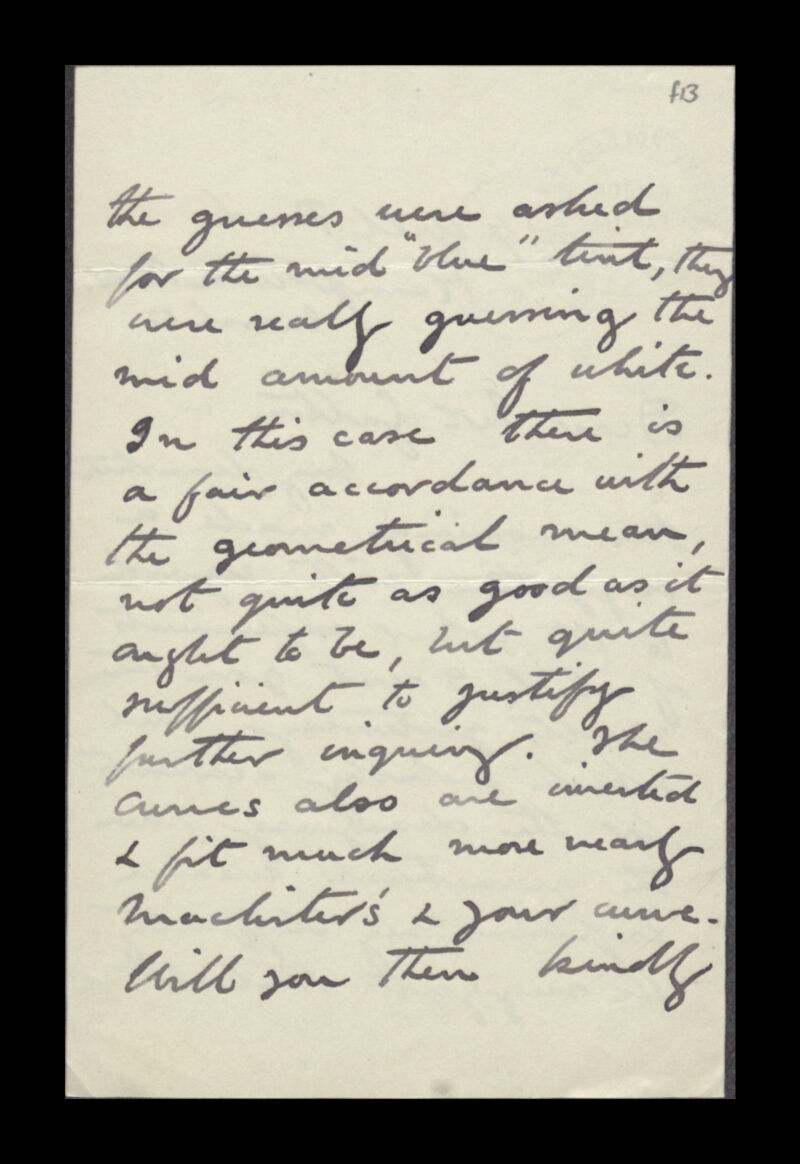 f13
the guesses were asked
for the mid "blue" tint, they
were really guessing the
mid amount of white.
In this case there is
a fair accordance with
the geometrical mean,
not quite as good as it
ought to be, but quite
sufficient to justify
further inquiry. The
curves also are inverted
& fit much more nearly
Macalister's & your curve.
Will you then kindly